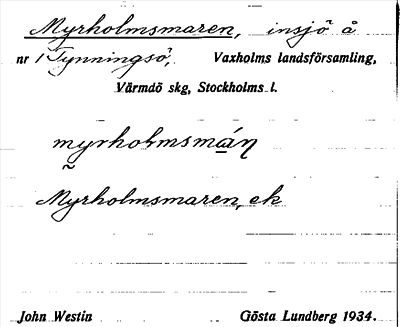 Myrholmsmaren, insjö å
nr 1 Tynningsö, Vaxholms landsförsamling,
Värmdö skg, Stockholms l.
myrholmsmáṇ
~
Myrholmsmaren, ek
John Westin Gösta Lundberg 1934.